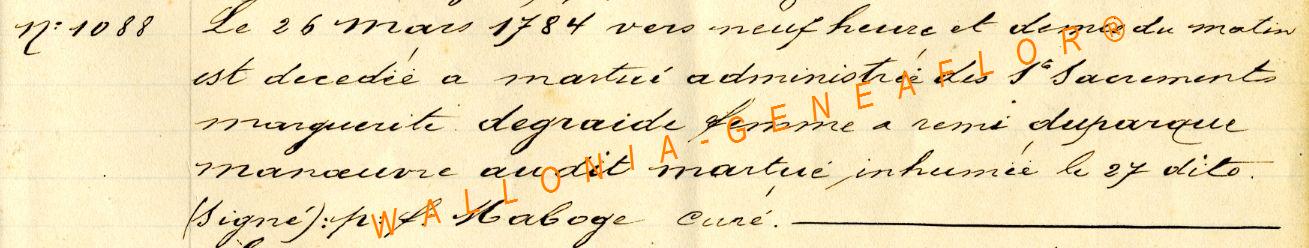 N°: 1088 Le 26 Mars 1784 vers neuf heure et demie du matin
est decedée a martué administrée des Sts Sacrements
marguerite degraide femme a remi duparque
manœuvre audit martué inhumée le 27 dito.
(Signé): p: fr Maboge curé.
WALLONIA-GENEAFLOR®